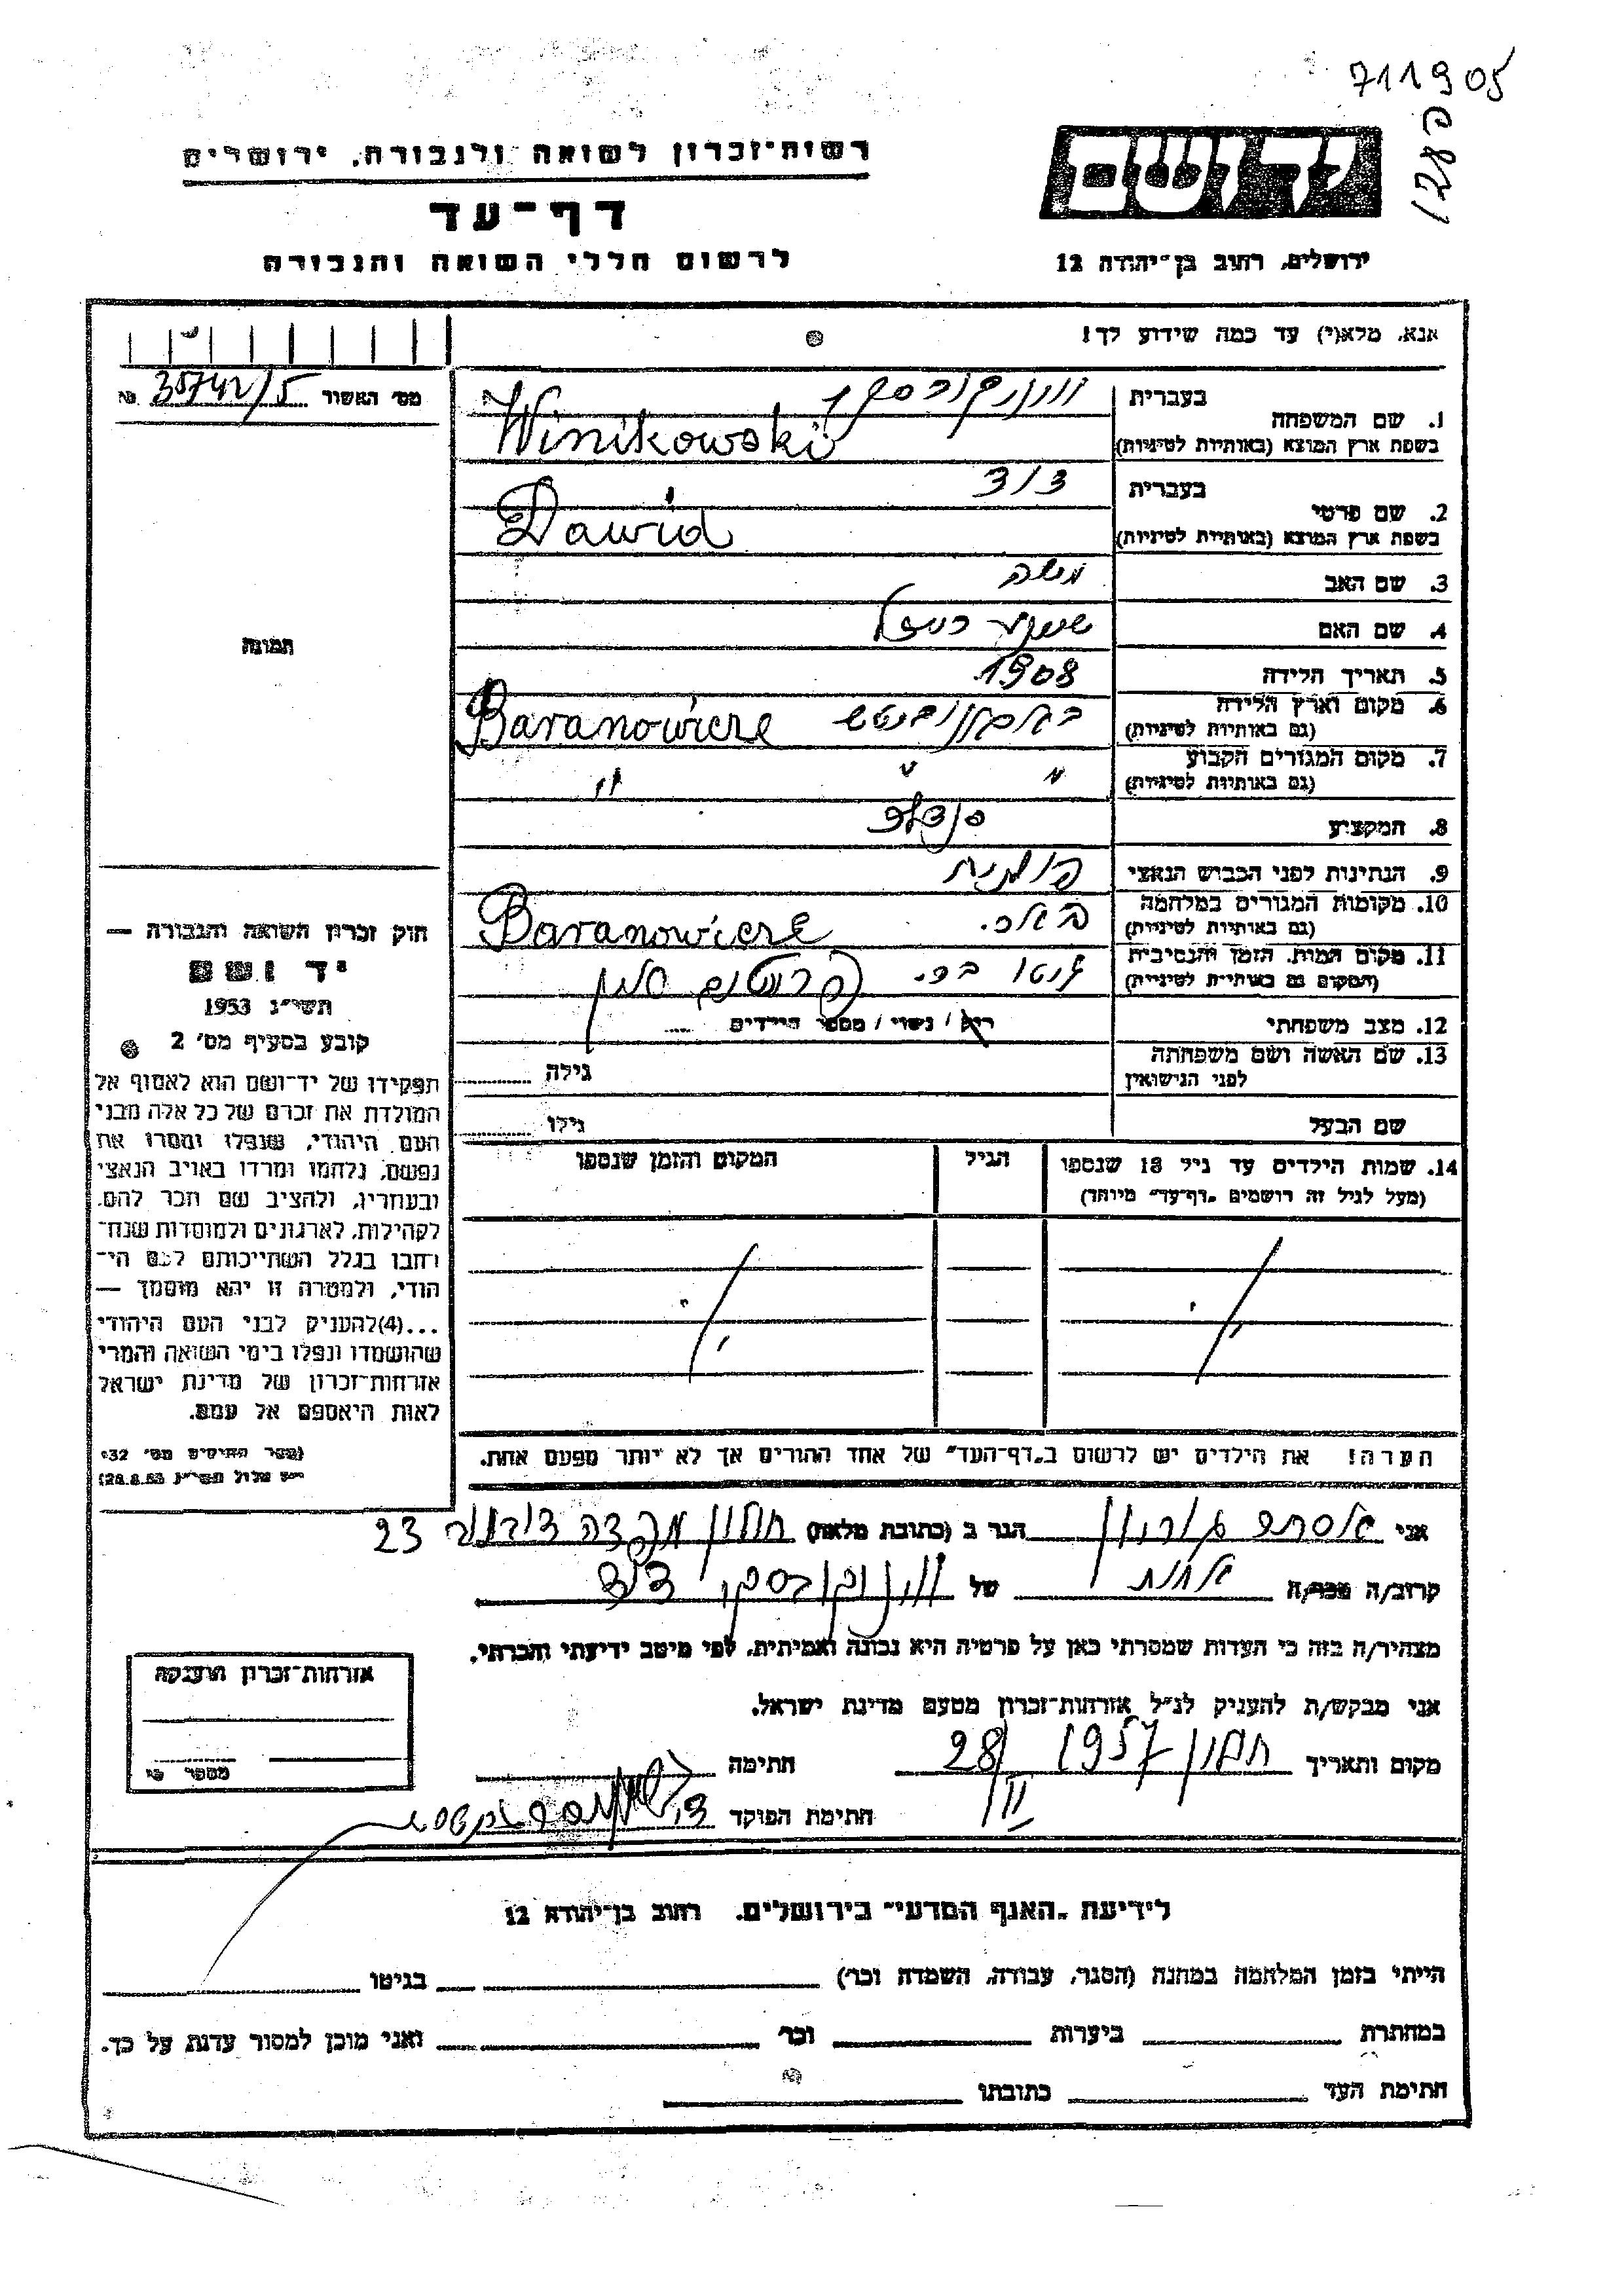 711905
128פ
רשות־זכרון לשואה ולגבורה, ירושלים
ידושם
דף־עד
לרשום חללי השואה והגבורה
ירושלים, רחוב בן־יהודה 12
אנא, מלא(י) עד כמה שידוע לך!
מס׳ האשור 35742/5 №
בעברית
1. שם המשפחה
בשפת ארץ המוצא (באותיות לטיניות) Winikowski
בעברית דוד
2. שם פרטי
בשפת ארץ המוצא (באותיות לטיניות) Dawid
3. שם האב משה
4. שם האם
תמונה
5. תאריך הלידה 1908
6. מקום וארץ הלידה Baranowicze
(גם באותיות לטיניות)
7. מקום המגורים הקבוע " " "
(גם באותיות לטיניות)
8. המקצוע
9. הנתינות לפני הכבוש הנאצי פולנית
10. מקומות המגורים במלחמה Baranowicze
(גם באותיות לטיניות)
11. מקום המות, הזמן והנסיבות
(המקום גם באותיות לטיניות)
12. מצב משפחתי רווק / נשוי / מספר הילדים
13. שם האשה ושם משפחתה
לפני הנישואין גילה
שם הבעל גילו
14. שמות הילדים עד גיל 18 שנספו הגיל המקום והזמן שנספו
(מעל לגיל זה רושמים „דף־עד” מיוחד)
חוק זכרון השואה והגבורה —
יד ושם
תשי״ג 1953
קובע בסעיף מס׳ 2
תפקידו של יד־ושם הוא לאסוף אל
המולדת את זכרם של כל אלה מבני
העם היהודי, שנפלו ומסרו את
נפשם, נלחמו ומרדו באויב הנאצי
ובעוזריו, ולהציב שם וזכר להם,
לקהילות, לארגונים ולמוסדות שנח־
רבו בגלל השתייכותם לעם הי־
הודי, ולמטרה זו יהא מוסמך —
...(4)להעניק לבני העם היהודי
שהושמדו ונפלו בימי השואה והמרי
אזרחות־זכרון של מדינת ישראל
לאות היאספם אל עמם.
(ספר החוקים מס׳ 132
י״ז אלול תשי״ג 28.8.53)
הערה! את הילדים יש לרשום ב„דף־העד” של אחד ההורים אך לא יותר מפעם אחת.
אני אסתר הגר ב (כתובת מלאה) חולון 23
קרוב/ה מכר/ה אחות של ויניקובסקי דוד
מצהיר/ה בזה כי העדות שמסרתי כאן על פרטיה היא נכונה ואמיתית, לפי מיטב ידיעתי והכרתי.
אני מבקש/ת להעניק לנ״ל אזרחות־זכרון מטעם מדינת ישראל.
מקום ותאריך חולון 28/II 1957 חתימה
חתימת הפוקד
אזרחות־זכרון הוענקה
מספר כי
לידיעת „האגף המדעי” בירושלים, רחוב בן־יהודה 12
הייתי בזמן המלחמה במחנה (הסגר, עבודה, השמדה וכו׳) בגיטו
במחתרת ביערות וכו׳ ואני מוכן למסור עדות על כך.
חתימת העד כתובתו